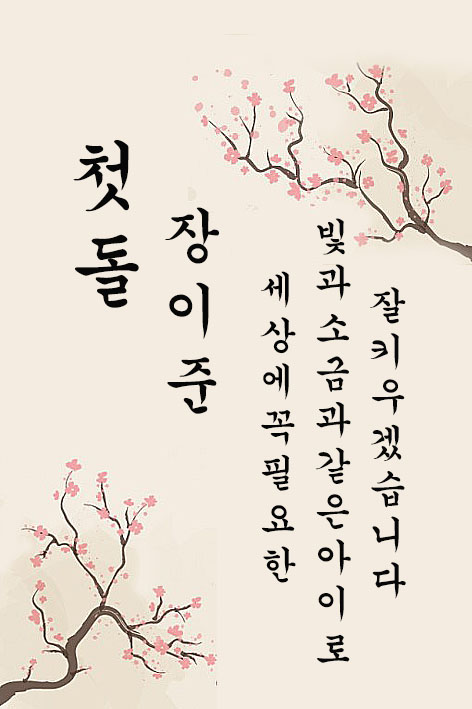 첫돌
장이준
세상에꼭필요한
빛과소금과같은아이로
잘키우겠습니다